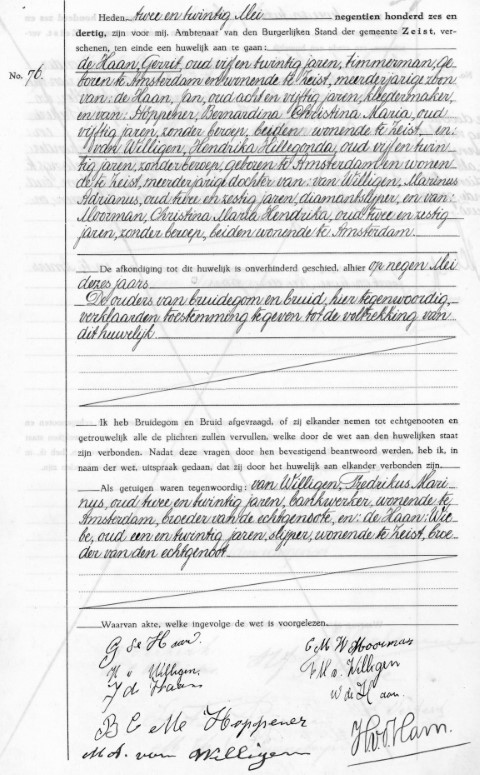 Heden, twee en twintig Mei negentien honderd zes en
dertig, zijn voor mij, Ambtenaar van den Burgerlijken Stand der gemeente Zeist, ver-
schenen, ten einde een huwelijk aan te gaan:
No. 76.
de Haan, Gerrit, oud vijf en twintig jaren, timmerman, ge-
boren te Amsterdam en wonende te Zeist, meerderjarige zoon
van: de Haan, Jan, oud acht en vijftig jaren, kleedermaker,
en van: Hoppener, Bernardina Christina Maria, oud
vijftig jaren, zonder beroep, beiden wonende te Zeist, en:
van Willigen, Hendrika Hillegonda, oud vijf en twin-
tig jaren, zonder beroep, geboren te Amsterdam en wonen
de te Zeist, meerderjarige dochter van: van Willigen, Marinus
Adrianus, oud twee en zestig jaren, diamantslyper, en van:
Moorman, Christina Maria Hendrika, oud twee en zestig
jaren, zonder beroep, beiden wonende te Amsterdam.
De afkondiging tot dit huwelijk is onverhinderd geschied, alhier op negen Mei
dezes jaars.
De ouders van bruidegom en bruid, hier tegenwoordig,
verklaarden toestemming te geven tot de voltrekking van
dit huwelijk
Ik heb Bruidegom en Bruid afgevraagd, of zij elkander nemen tot echtgenooten en
getrouwelijk alle de plichten zullen vervullen, welke door de wet aan den huwelijken staat
zijn verbonden. Nadat deze vragen door hen bevestigend beantwoord werden, heb ik, in
naam der wet, uitspraak gedaan, dat zij door het huwelijk aan elkander verbonden zijn.
Als getuigen waren tegenwoordig: van Willigen, Fredrikus Mari-
nus, oud twee en twintig jaren, bankwerker, wonende te
Amsterdam, broeder van de echtgenoote, en: de Haan, Wie-
be, oud een en twintig jaren, slyper, wonende te Zeist, broe-
der van den echtgenoot.
Waarvan akte, welke ingevolge de wet is voorgelezen.
G de Haan.
C M W Moorman
H v Willigen.
F M v. Willigen
J de Haan
W de Haan.
B C M Hoppener
M A. van Willigen